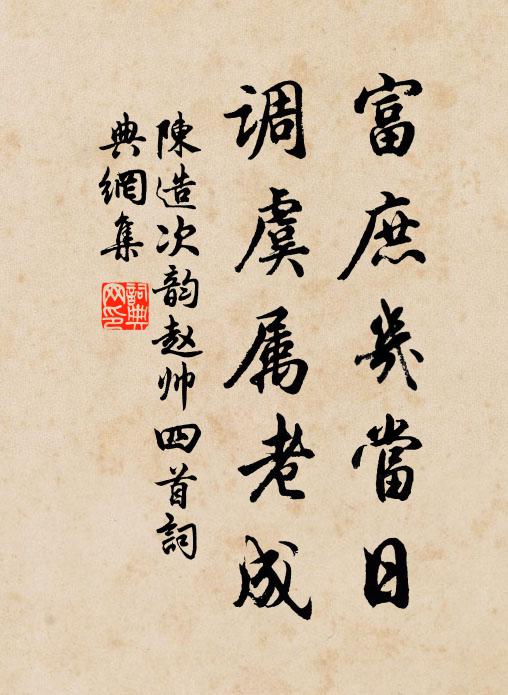 富庶幾當日
调虞属老成
陳造次韵赵帅四首詞
典網集
詞典
网印